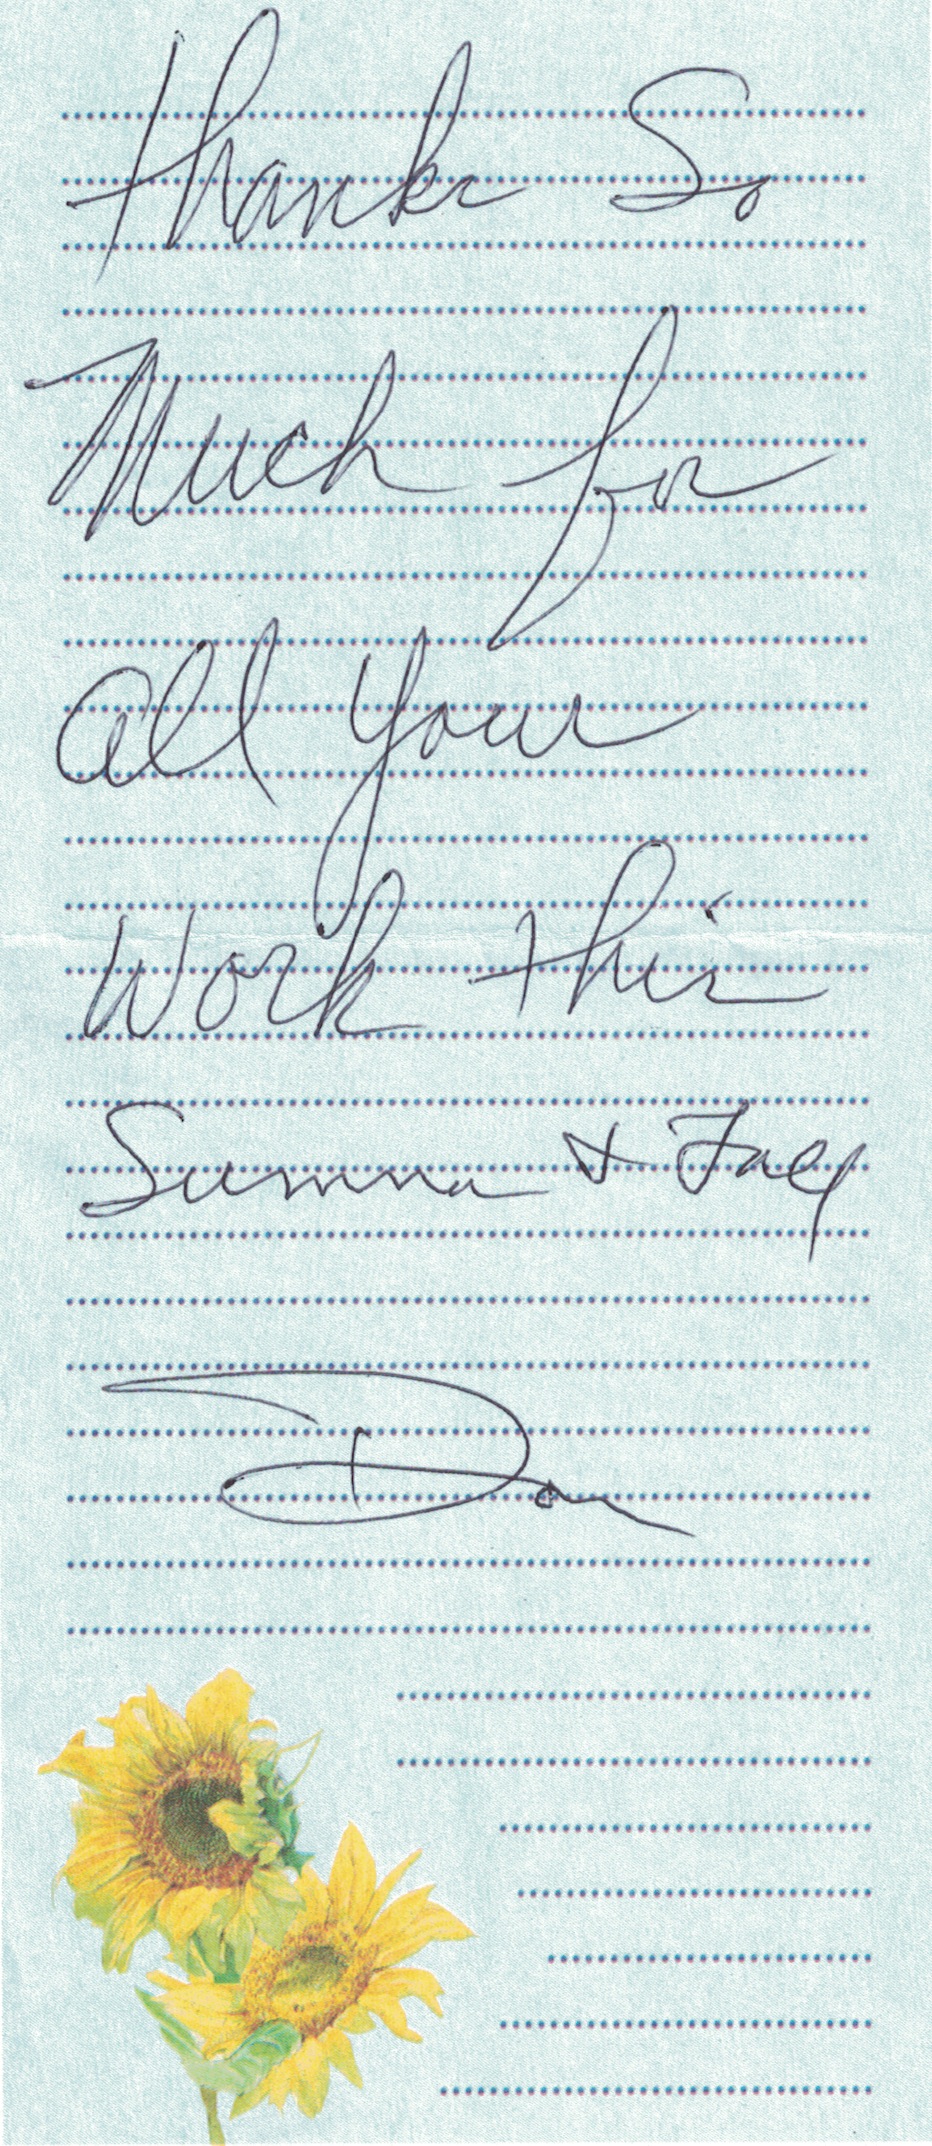 Thanks So
Much for
all your
Work this
Summer & Fall
Don